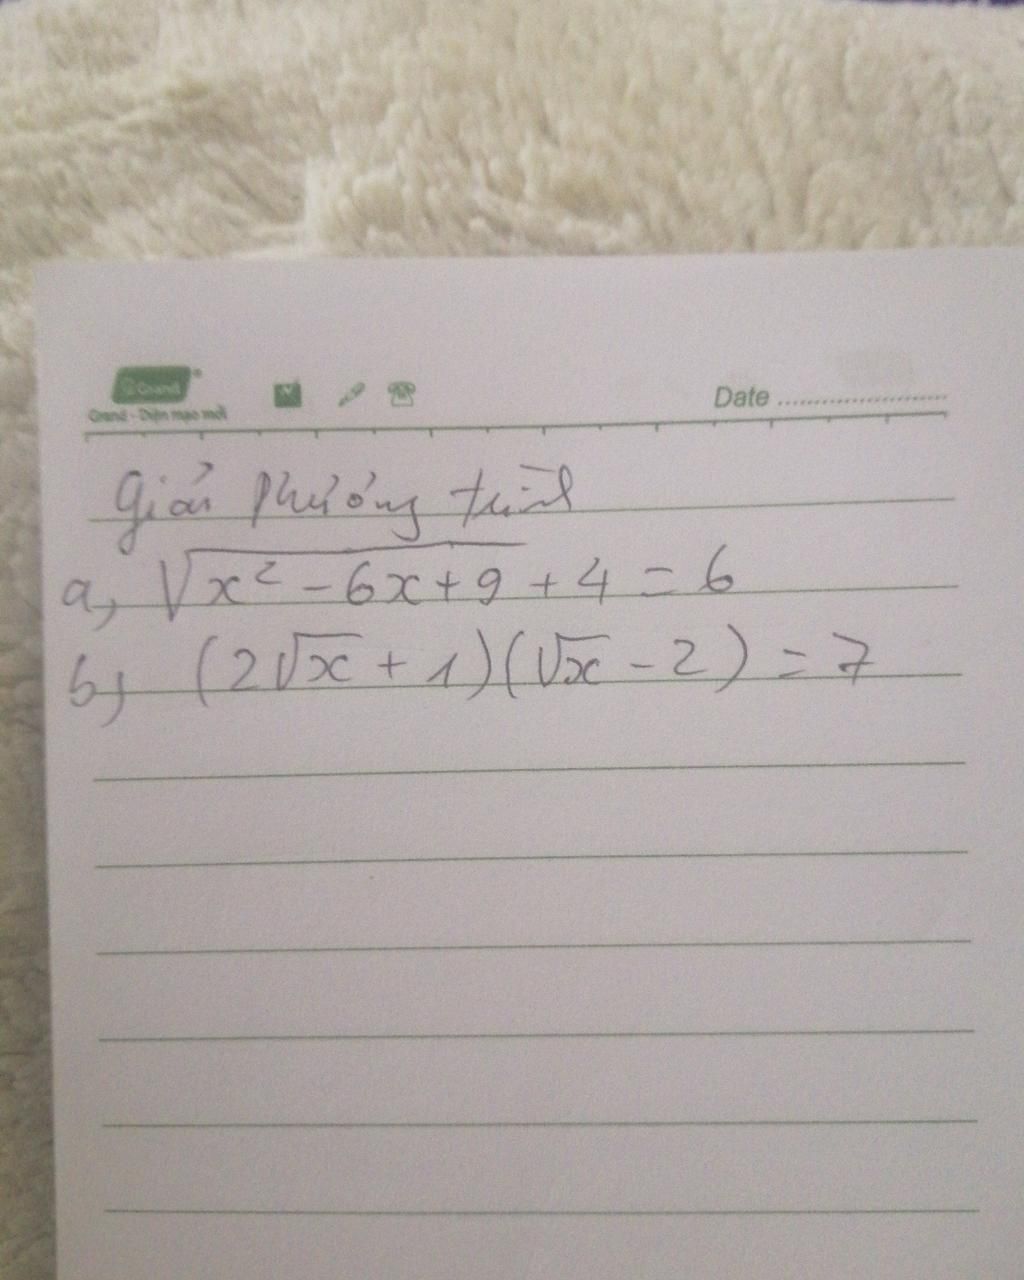 Grand
Grand - Diện mạo mới
Date
Giải phương trình
a, √(x² - 6x + 9) + 4 = 6
b, (2√x + 1)(√x - 2) = 7